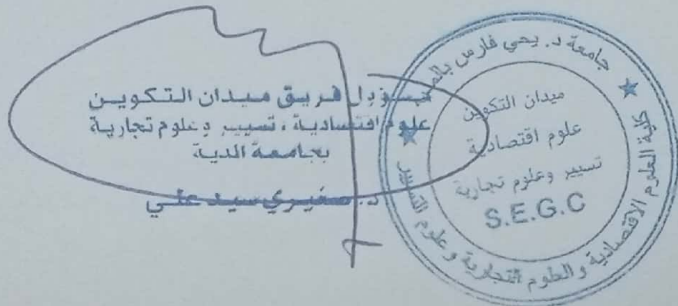 مسؤول فريق ميدان التكوين
علوم اقتصادية ، تسيير وعلوم تجارية
بجامعة المدية
د. صغيري سيد علي
جامعة د. يحي فارس بالمدية
كلية العلوم الاقتصادية و العلوم التجارية و علوم التسيير
ميدان التكوين
علوم اقتصادية
تسيير وعلوم تجارية
S.E.G.C